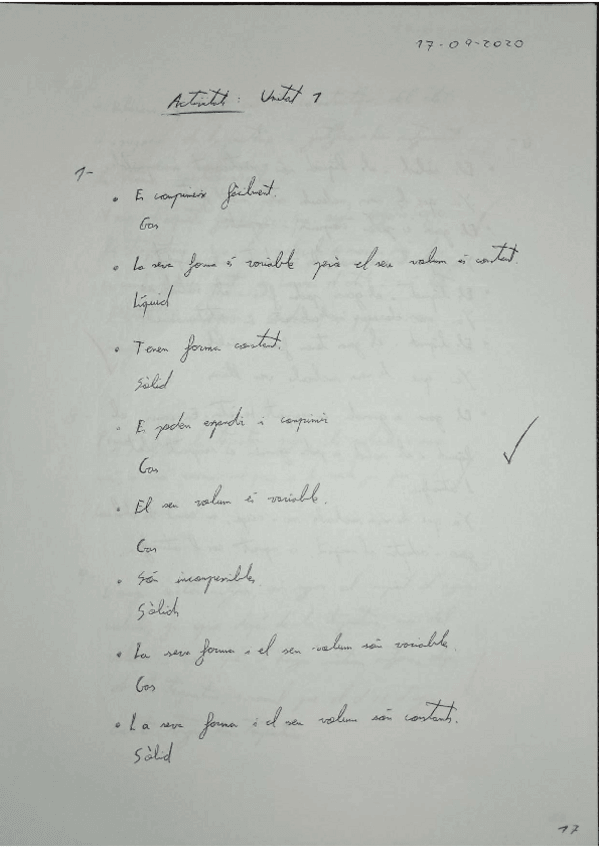 17-09-2020
Activitats: Unitat 1
1-
• Es comprimeix fàcilment.
Gas
• La seva forma és variable però el seu volum és constant.
Líquid
• Tenen forma constant.
Sòlid
• Es poden expandir i comprimir
Gas
• El seu volum és variable.
Gas
• Són incompresibles.
Sòlids
• La seva forma i el seu volum són variables.
Gas
• La seva forma i el seu volum són constants.
Sòlid
17